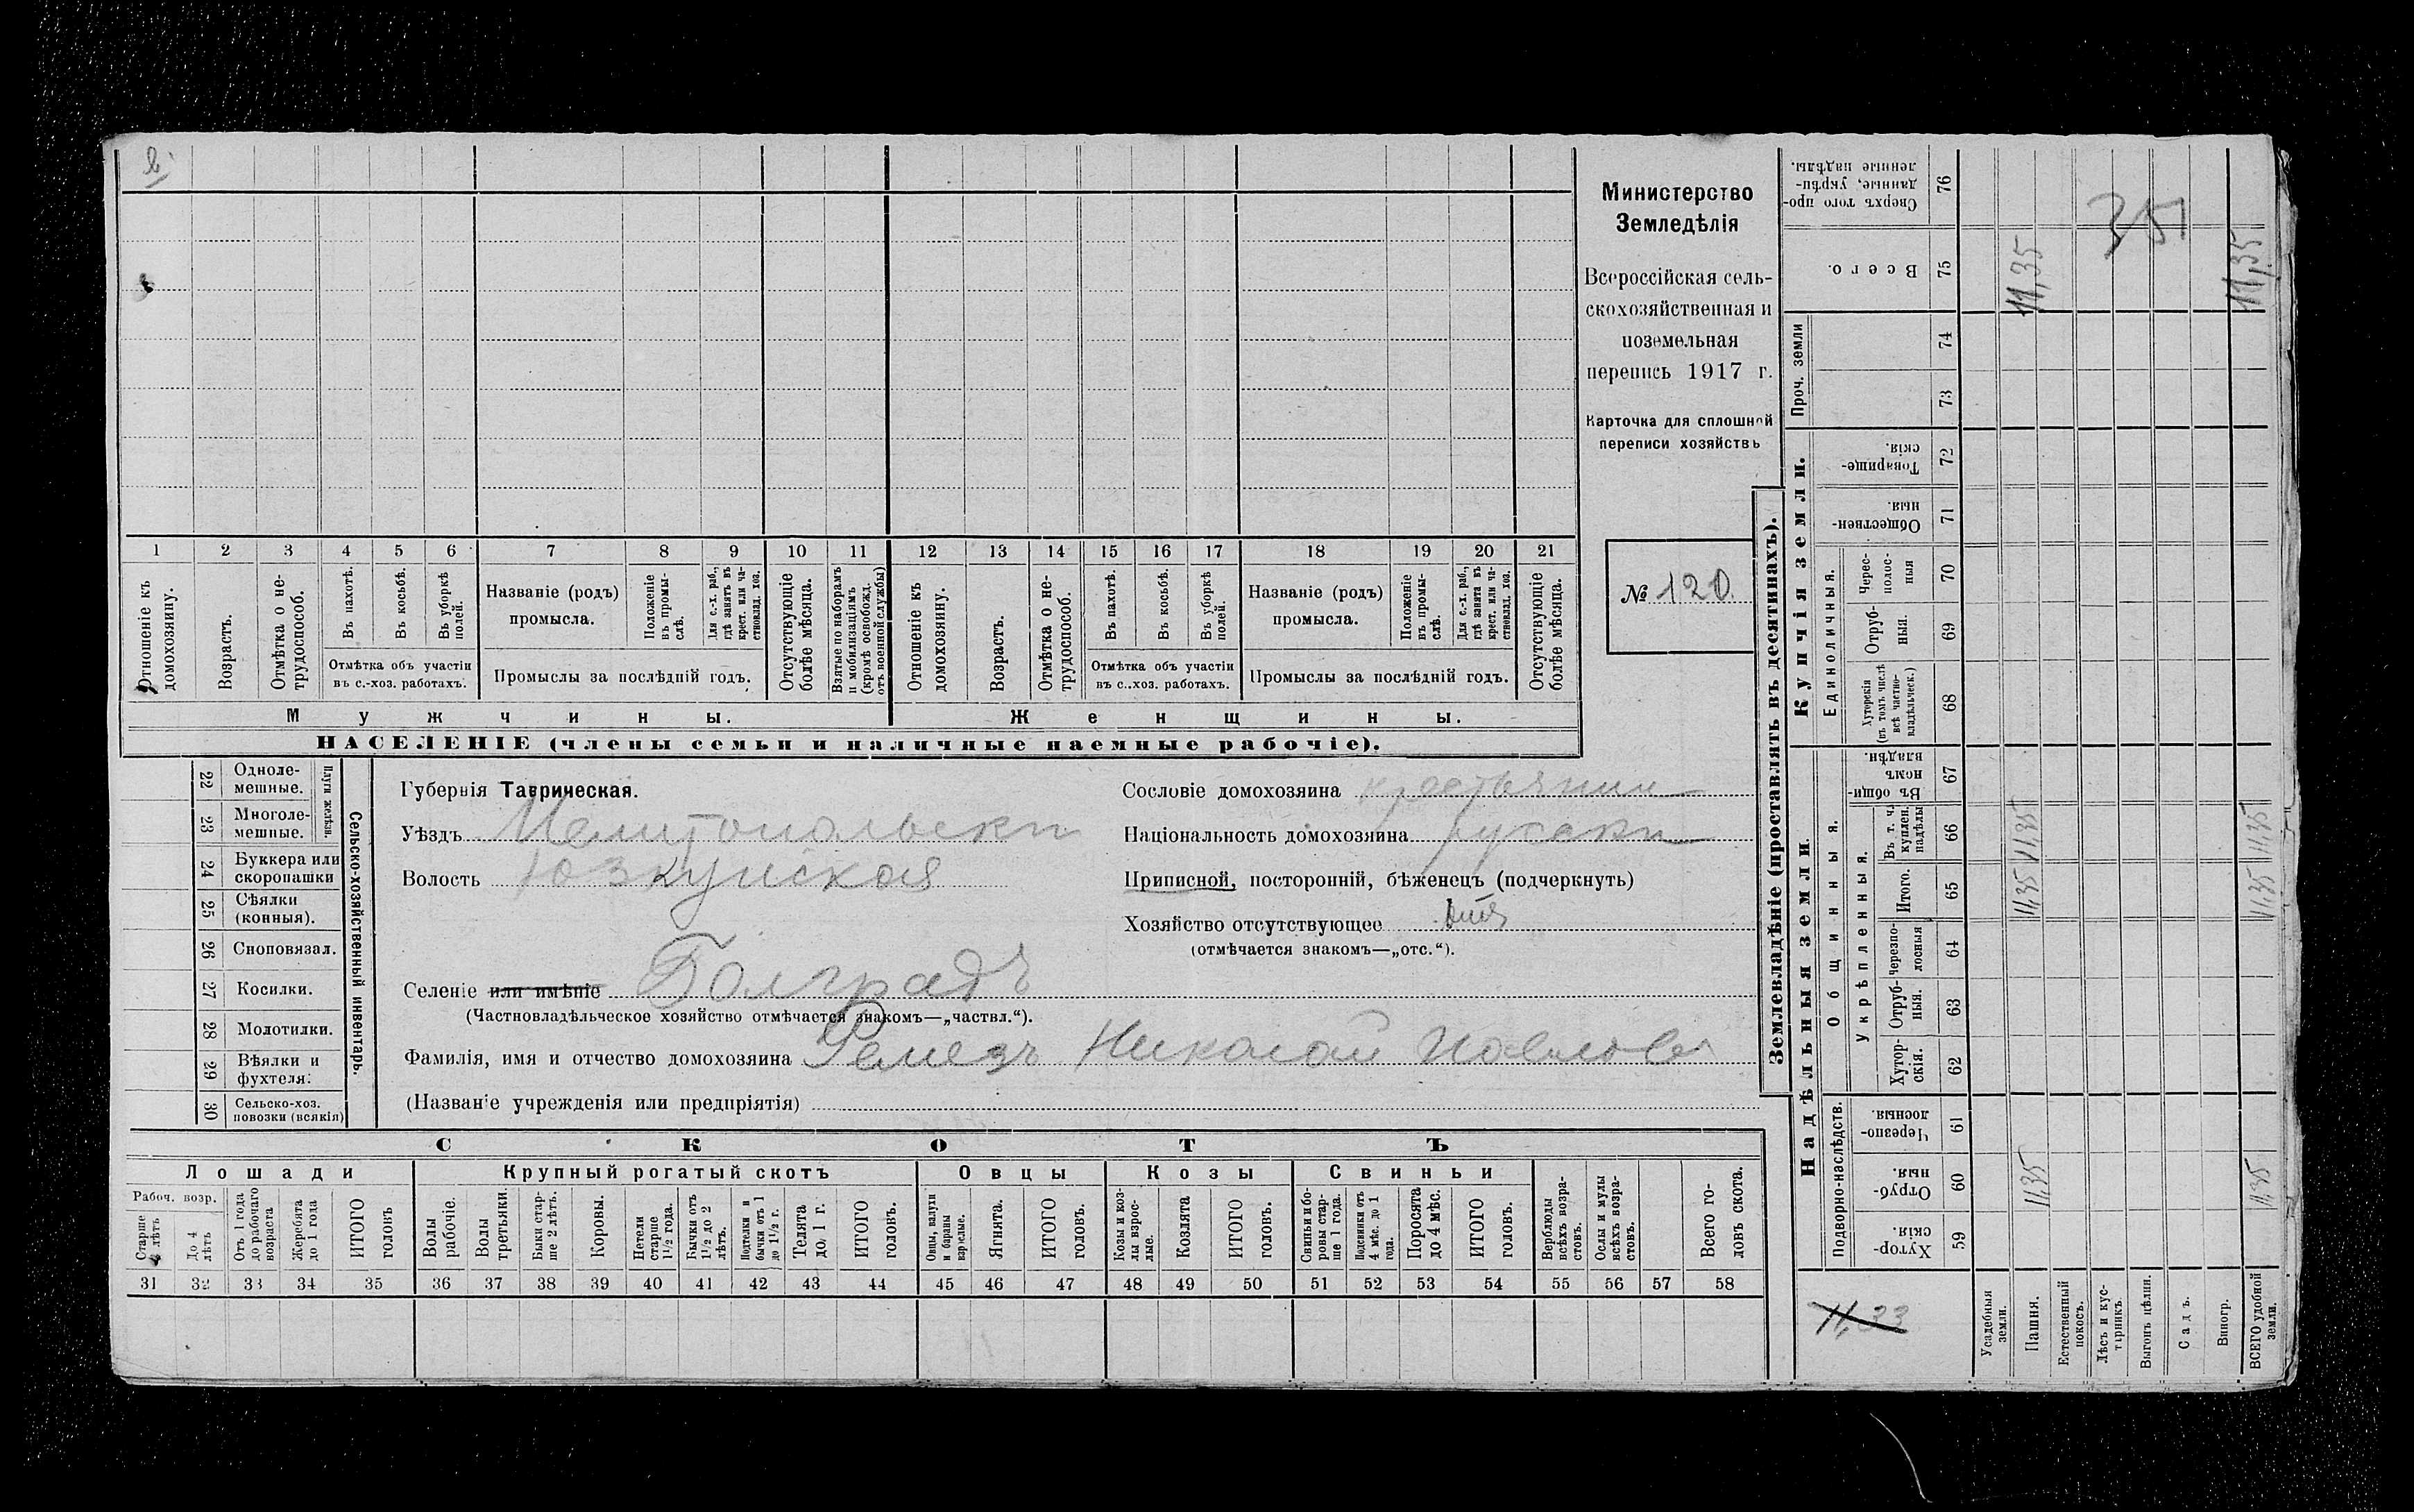 Министерство
Земледѣлія
Всероссійская сель-
скохозяйственная и
поземельная
перепись 1917 г.
Карточка для сплошной
переписи хозяйствъ
№ 120
1 2 3 4 5 6 7 8 9 10 11 12 13 14 15 16 17 18 19 20 21
Отношеніе къ домохозяину.
Возрастъ.
Отмѣтка о не-трудоспособ.
Въ пахотѣ.
Въ косьбѣ.
Въ уборкѣ полей.
Отмѣтка объ участіи
въ с.-хоз. работахъ.
Названіе (родъ)
промысла.
Положеніе въ промы-слѣ.
Для с.-х. раб., гдѣ занятъ въ крест. или ча-стновлад. хоз.
Промыслы за послѣдній годъ.
Отсутствующіе болѣе мѣсяца.
Взятые по наборамъ и мобилизаціямъ (кромѣ освобожд. отъ военной службы)
Отношеніе къ домохозяину.
Возрастъ.
Отмѣтка о не-трудоспособ.
Въ пахотѣ.
Въ косьбѣ.
Въ уборкѣ полей.
Отмѣтка объ участіи
въ с..хоз. работахъ.
Названіе (родъ)
промысла.
Положеніе въ промы-слѣ.
Для с.-х. раб., гдѣ занята въ крест. или ча-стновлад. хоз.
Промыслы за послѣдній годъ.
Отсутствующіе болѣе мѣсяца.
Мужчины.
Женщины.
НАСЕЛЕНІЕ (члены семьи и наличные наемные рабочіе).
22 Одноле-мешные.
23 Многоле-мешные.
Плуги желѣзн.
24 Буккера или скоропашки
25 Сѣялки (конныя).
26 Сноповязал.
27 Косилки.
28 Молотилки.
29 Вѣялки и фухтеля.
30 Сельско-хоз. повозки (всякія)
Сельско-хозяйственный инвентарь.
Губернія Таврическая.
Уѣздъ Мелитопольскій
Волость Юзкуйская
Селеніе или имѣніе Болградъ
(Частновладѣльческое хозяйство отмѣчается знакомъ—„частвл.“).
Фамилія, имя и отчество домохозяина Ремезъ Николай Павловъ
(Названіе учрежденія или предпріятія)
Сословіе домохозяина крестьянин
Національность домохозяина русскій
Приписной, посторонній, бѣженецъ (подчеркнуть)
Хозяйство отсутствующее
(отмѣчается знакомъ—„отс.“).
СКОТЪ
Лошади
Крупный рогатый скотъ
Овцы
Козы
Свиньи
Рабоч. возр.
Старше 4 лѣтъ
До 4 лѣтъ
Отъ 1 года до рабочаго возраста
Жеребята до 1 года
ИТОГО головъ
Волы рабочіе.
Волы третьяки.
Быки стар-ше 2 лѣтъ.
Коровы.
Нетели старше 1½ года.
Бычки отъ 1½ до 2 лѣтъ.
Подтелки и бычки отъ 1 до 1½ г.
Телята до 1 г.
ИТОГО головъ.
Овцы, валухи и бараны взрослые.
Ягнята.
ИТОГО головъ.
Козы и коз-лы взрос-лые.
Козлята
ИТОГО головъ.
Свиньи и бо-ровы стар-ше 1 года.
Подсвинки отъ 4 мѣс. до 1 года.
Поросята до 4 мѣс.
ИТОГО головъ.
Верблюды всѣхъ возра-стовъ.
Ослы и мулы всѣхъ возра-стовъ.
Всего го-ловъ скота.
31 32 33 34 35 36 37 38 39 40 41 42 43 44 45 46 47 48 49 50 51 52 53 54 55 56 57 58
Землевладѣніе (проставлять въ десятинахъ).
Надѣльныя земли.
Купчія земли.
Проч. земли
Подворно-наслѣдств.
Общинныя.
Укрѣпленныя.
Единоличныя.
Сверхъ того про-данные, укрѣп-ленные надѣлы. 76
Всего. 75 11,35 11,35
351
74
73
Товарище-скія. 72
Обществен-ныя. 71
Черес-полос-ныя 70
Отруб-ныя. 69
Хуторскія (въ томъ числѣ всѣ частно-владѣльческ.) 68
Въ общин-номъ владѣн. 67
Въ т. ч. куплен. надѣлы 66 11,35 11,35
Итого. 65 11,35 11,35
Черезпо-лосныя 64
Отруб-ныя. 63
Хутор-скія. 62
Черезпо-лосныя. 61
Отруб-ныя. 60 11,35 11,35
Хутор-скія. 59
11,33
Усадебныя земли.
Пашня.
Естественный покосъ.
Лѣсъ и кус-тарникъ.
Выгонъ цѣлин.
Садъ.
Виногр.
ВСЕГО удобной земли.